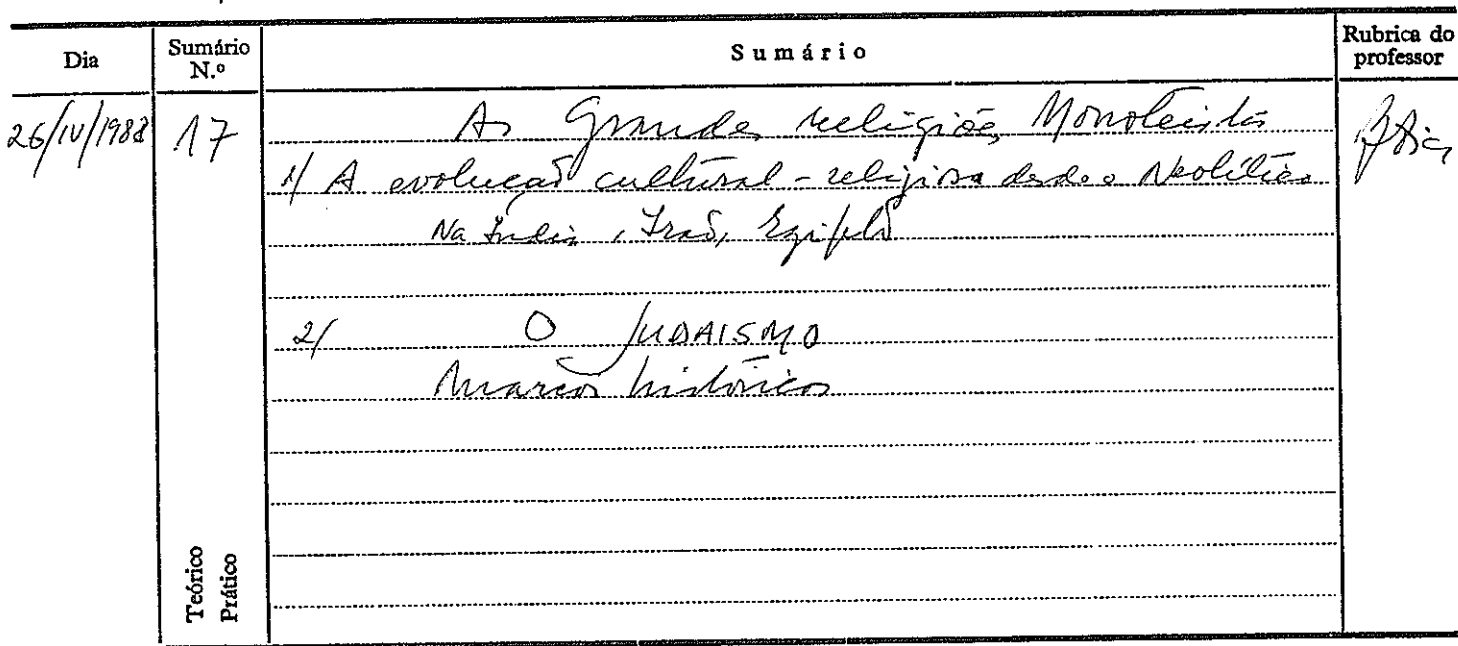 Dia
Sumário N.º
Sumário
Rubrica do professor
26/IV/1988 17 As Grandes religiões Monoteistas
1/ A evolução cultural - religiosa desde o Neolítico
Na Índia, Irão, Egipto
2/ O JUDAISMO
Marcos históricos
Teórico
Prático